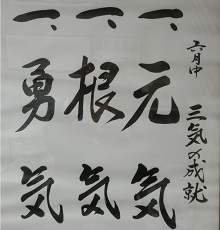 六月中
三気の成就
一、元気
一、根気
一、勇気